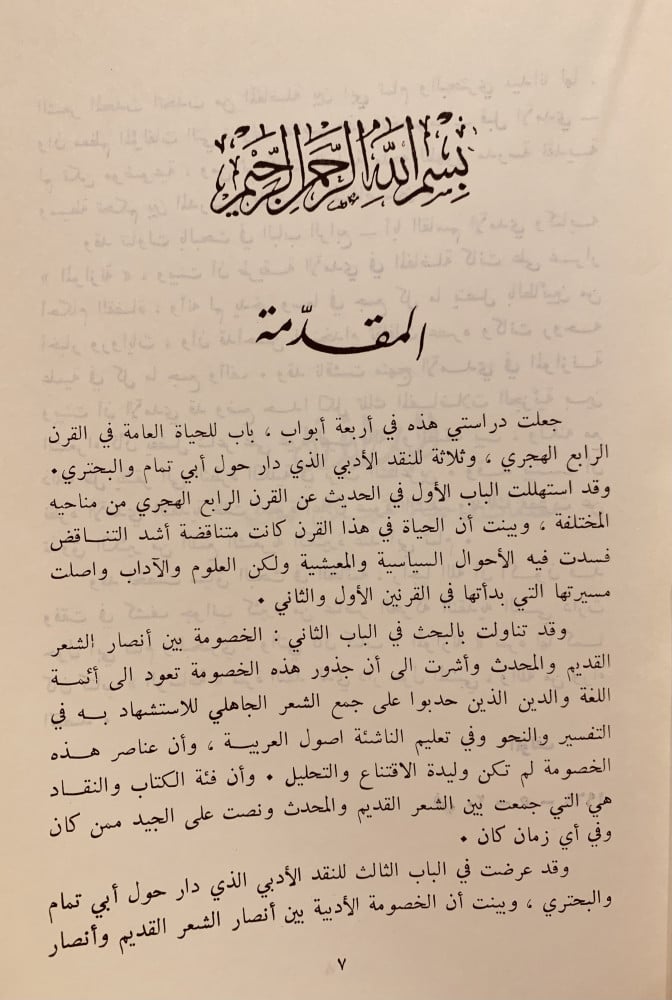 بسم الله الرحمن الرحيم
المقدّمة
جعلت دراستي هذه في أربعة أبواب ، باب للحياة العامة في القرن
الرابع الهجري ، وثلاثة للنقد الأدبي الذي دار حول أبي تمام والبحتري.
وقد استهللت الباب الأول في الحديث عن القرن الرابع الهجري من مناحيه
المختلفة ، وبينت أن الحياة في هذا القرن كانت متناقضة أشد التنـاقض
فسدت فيه الأحوال السياسية والمعيشية ولكن العلوم والآداب واصلت
مسيرتها التي بدأتها في القرنين الأول والثاني .
وقد تناولت بالبحث في الباب الثاني : الخصومة بين أنصار الشعر
القديم والمحدث وأشرت الى أن جذور هذه الخصومة تعود الى أئمـة
اللغة والدين الذين حدبوا على جمع الشعر الجاهلي للاستشهاد بـه في
التفسير والنحو وفي تعليم الناشئة اصول العربية ، وأن عناصر هـذه
الخصومة لم تكن وليدة الاقتناع والتحليل . وأن فئة الكتاب والنقـاد
هي التي جمعت بين الشعر القديم والمحدث ونصت على الجيد ممن كان
وفي أي زمان كان .
وقد عرضت في الباب الثالث للنقد الأدبي الذي دار حول أبي تمام
والبحتري ، وبينت أن الخصومة الأدبية بين أنصار الشعر القديم وأنصار
٧